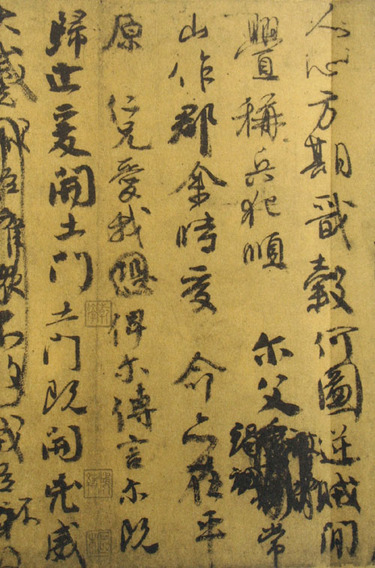 人心方期戩穀何圖逆賊間
釁稱兵犯順尔父竭誠常
山作郡余時受命亦在平
原仁兄愛我俾尔傳言尔既
歸止爰開土門土門既開凶威
大蹙